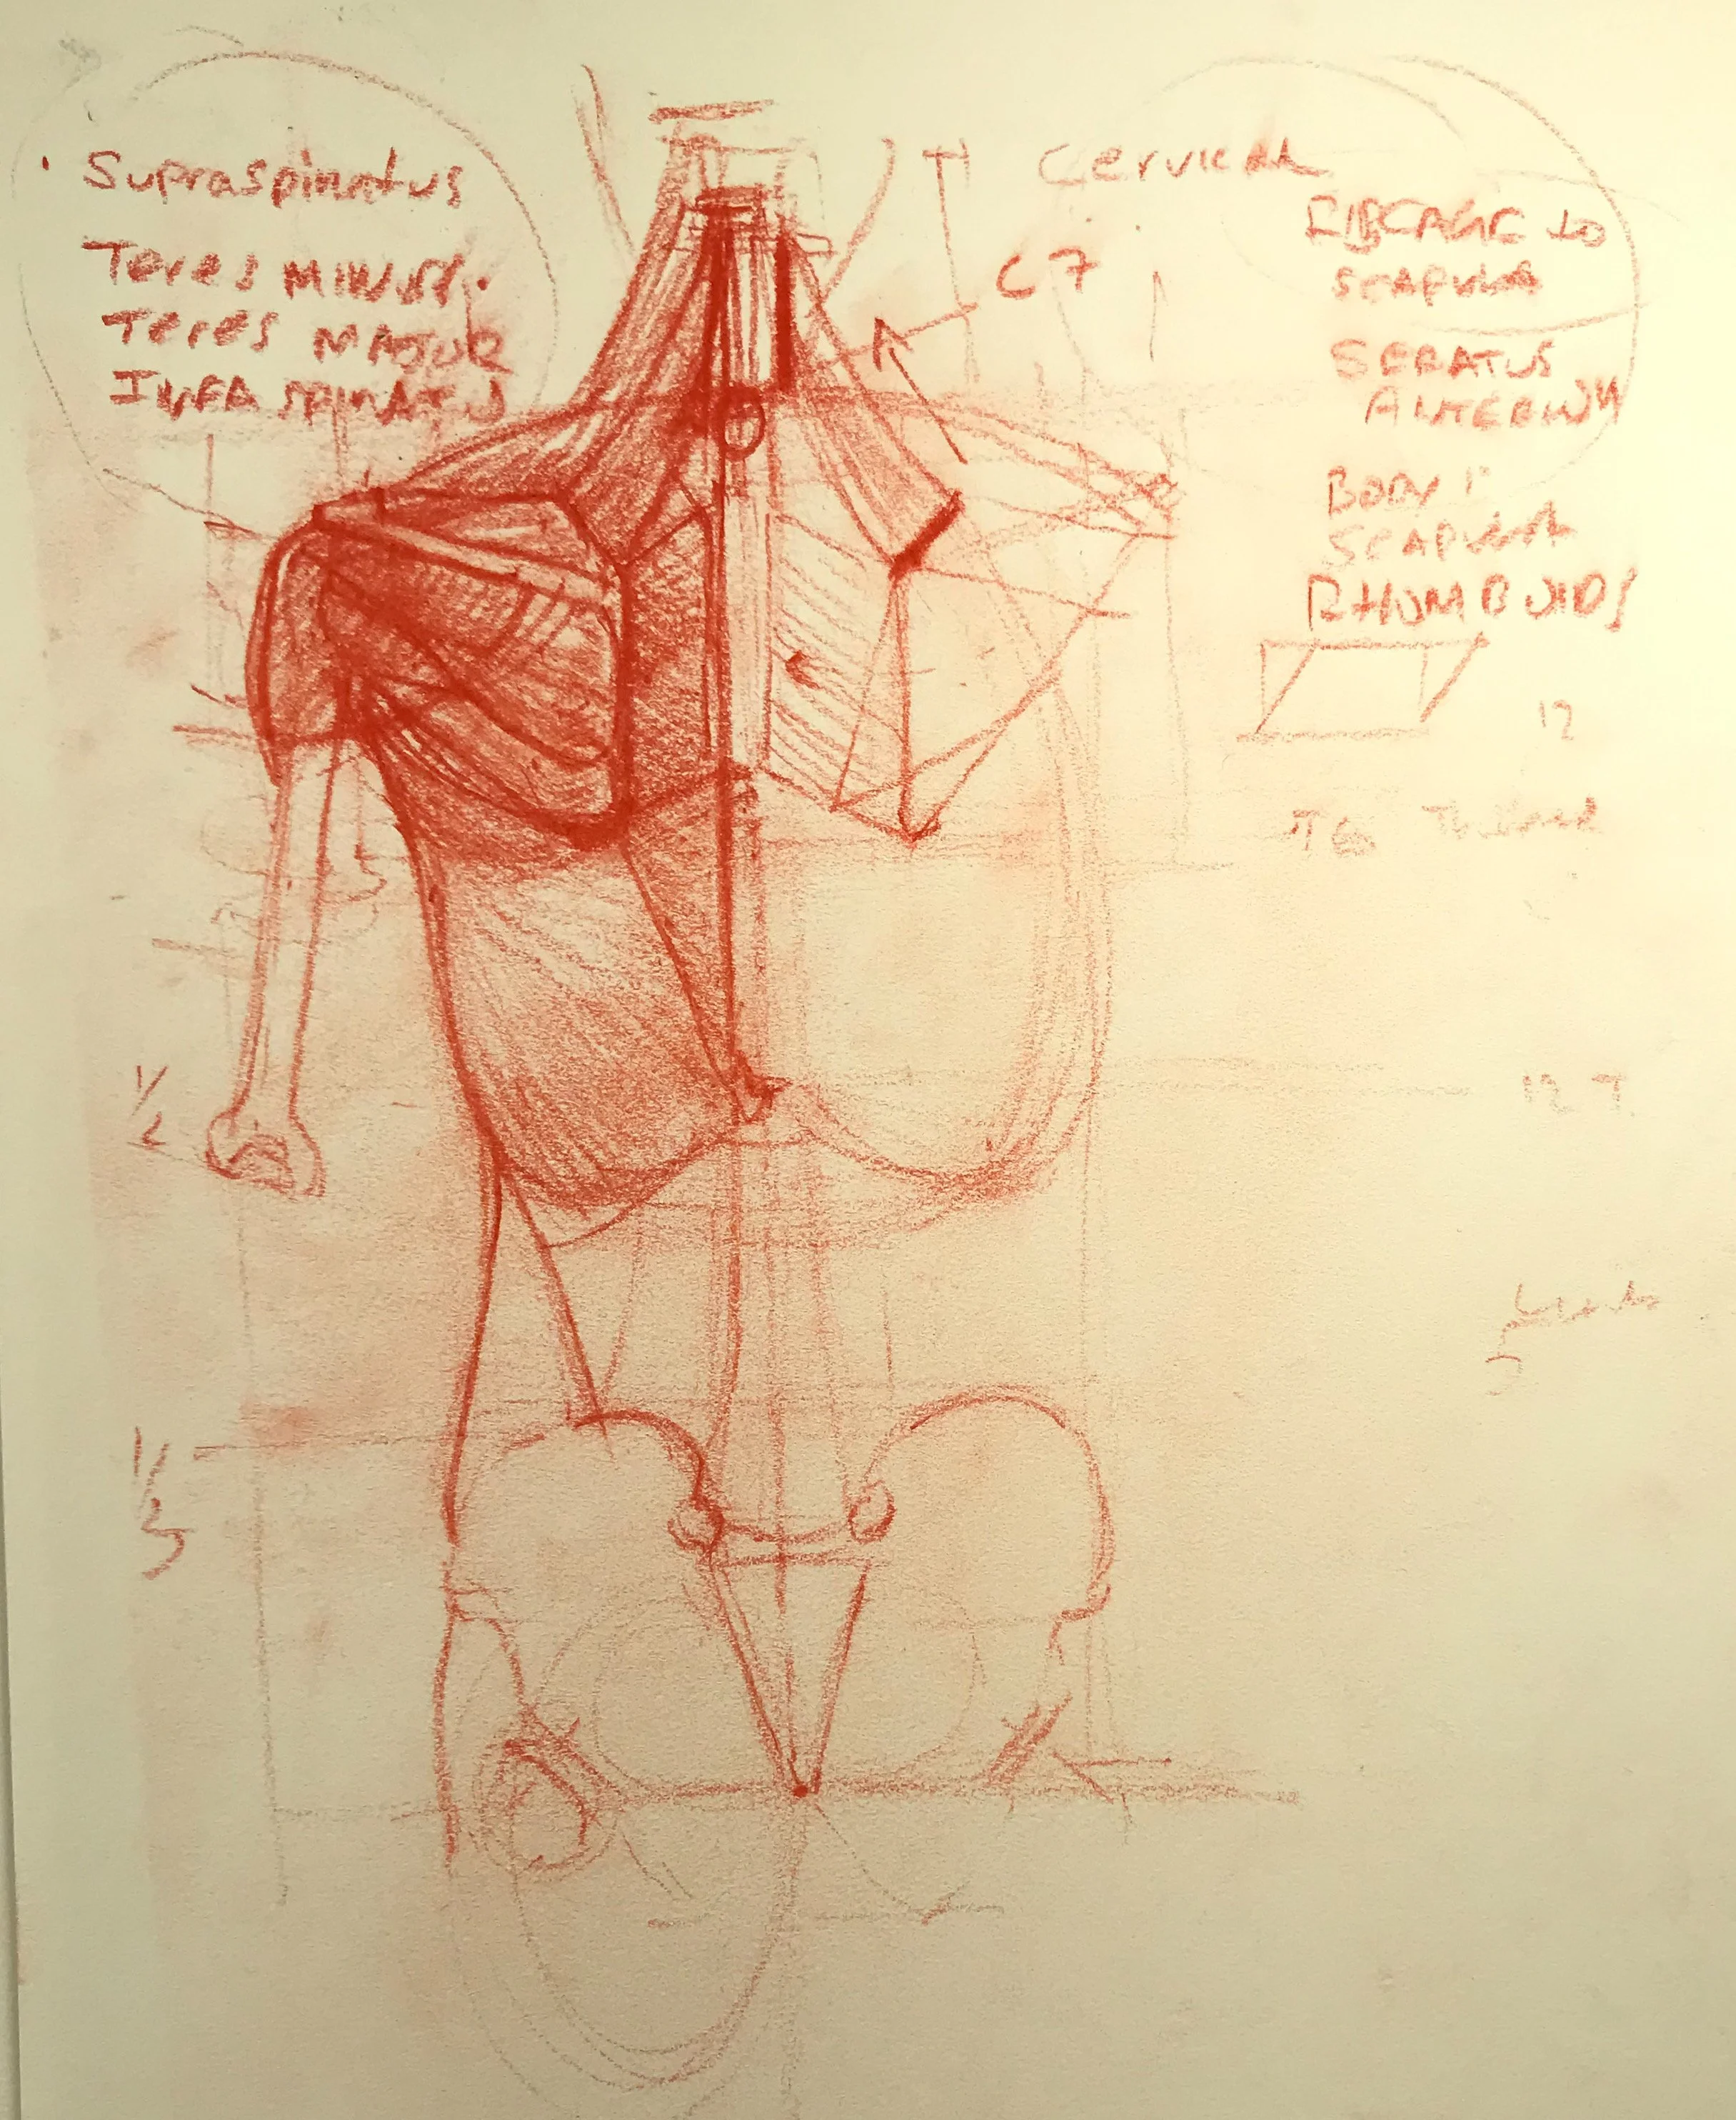 Supraspinatus
Teres MINUS.
Teres MAJOR
INFRASPINATUS
Cervical
C7
RIBCAGE to
SCAPULA
SERATUS
ANTERIUM
BODY
SCAPULA
RHOMBOIDS
12
T6
12 T
1/2
1/3
5